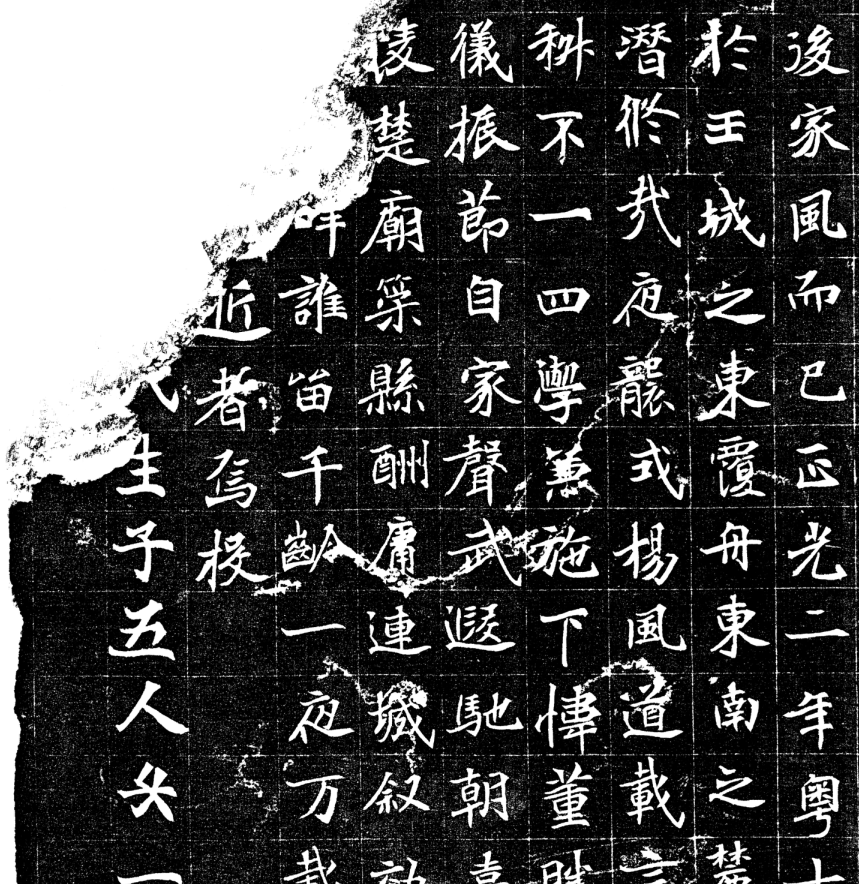 後家風而已正光二年粤十
於王城之東覆舟東南之
潛俢㢤夜襲式楊風道載言
科不一四學兼施下愇董
儀振節自家聲武遐馳朝
陵楚廟築縣酬庸連城叙
誰留千齡一夜万
近者焉投
生子五人头一